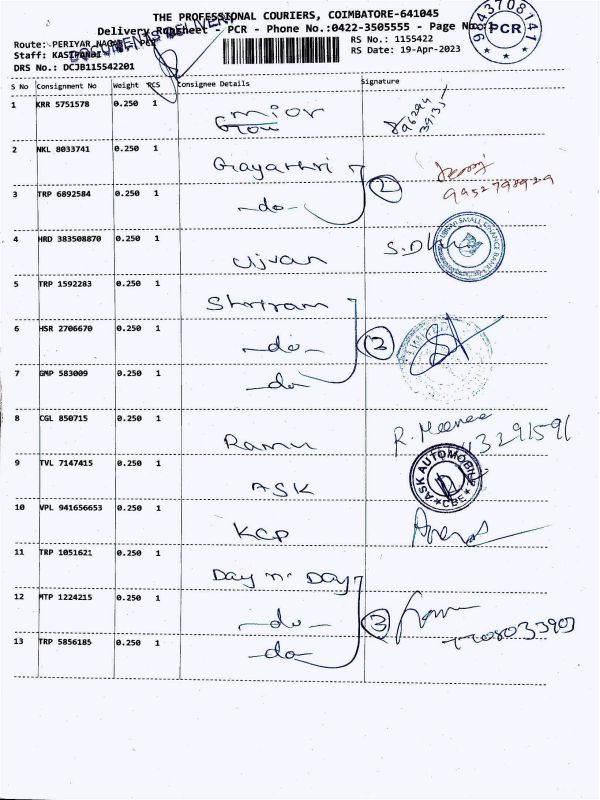 THE PROFESSIONAL COURIERS, COIMBATORE-641045
Delivery Runsheet - PCR - Phone No.:0422-3505555 - Page No.:1
Route: PERIYAR NAGAR - PCR
RS No.: 1155422
Staff: KASIPANDI
RS Date: 19-Apr-2023
DRS No.: DCJB115542201
DOCUMENTS DELIVERY
9843708141
PCR
S No Consignment No Weight PCS Consignee Details Signature
1 KRR 5751578 0.250 1 mior
Glow
2 NKL 8033741 0.250 1 Gayathri
3 TRP 6892584 0.250 1 -do- 2
9952798929
4 HRD 383508870 0.250 1 Ujvan S.D
UJJIVAN SMALL FINANCE BANK
5 TRP 1592283 0.250 1 Shriram
6 HSR 2706670 0.250 1 -do- 3
7 GMP 583009 0.250 1 -do-
8 CGL 850715 0.250 1 Ramu R. Meena
9 TVL 7147415 0.250 1 ASK
ASK AUTOMOBILE
CBE
10 VPL 941656653 0.250 1 KCP
11 TRP 1051621 0.250 1 Day n' Day
12 MTP 1224215 0.250 1 -do- 3
13 TRP 5856185 0.250 1 -do-